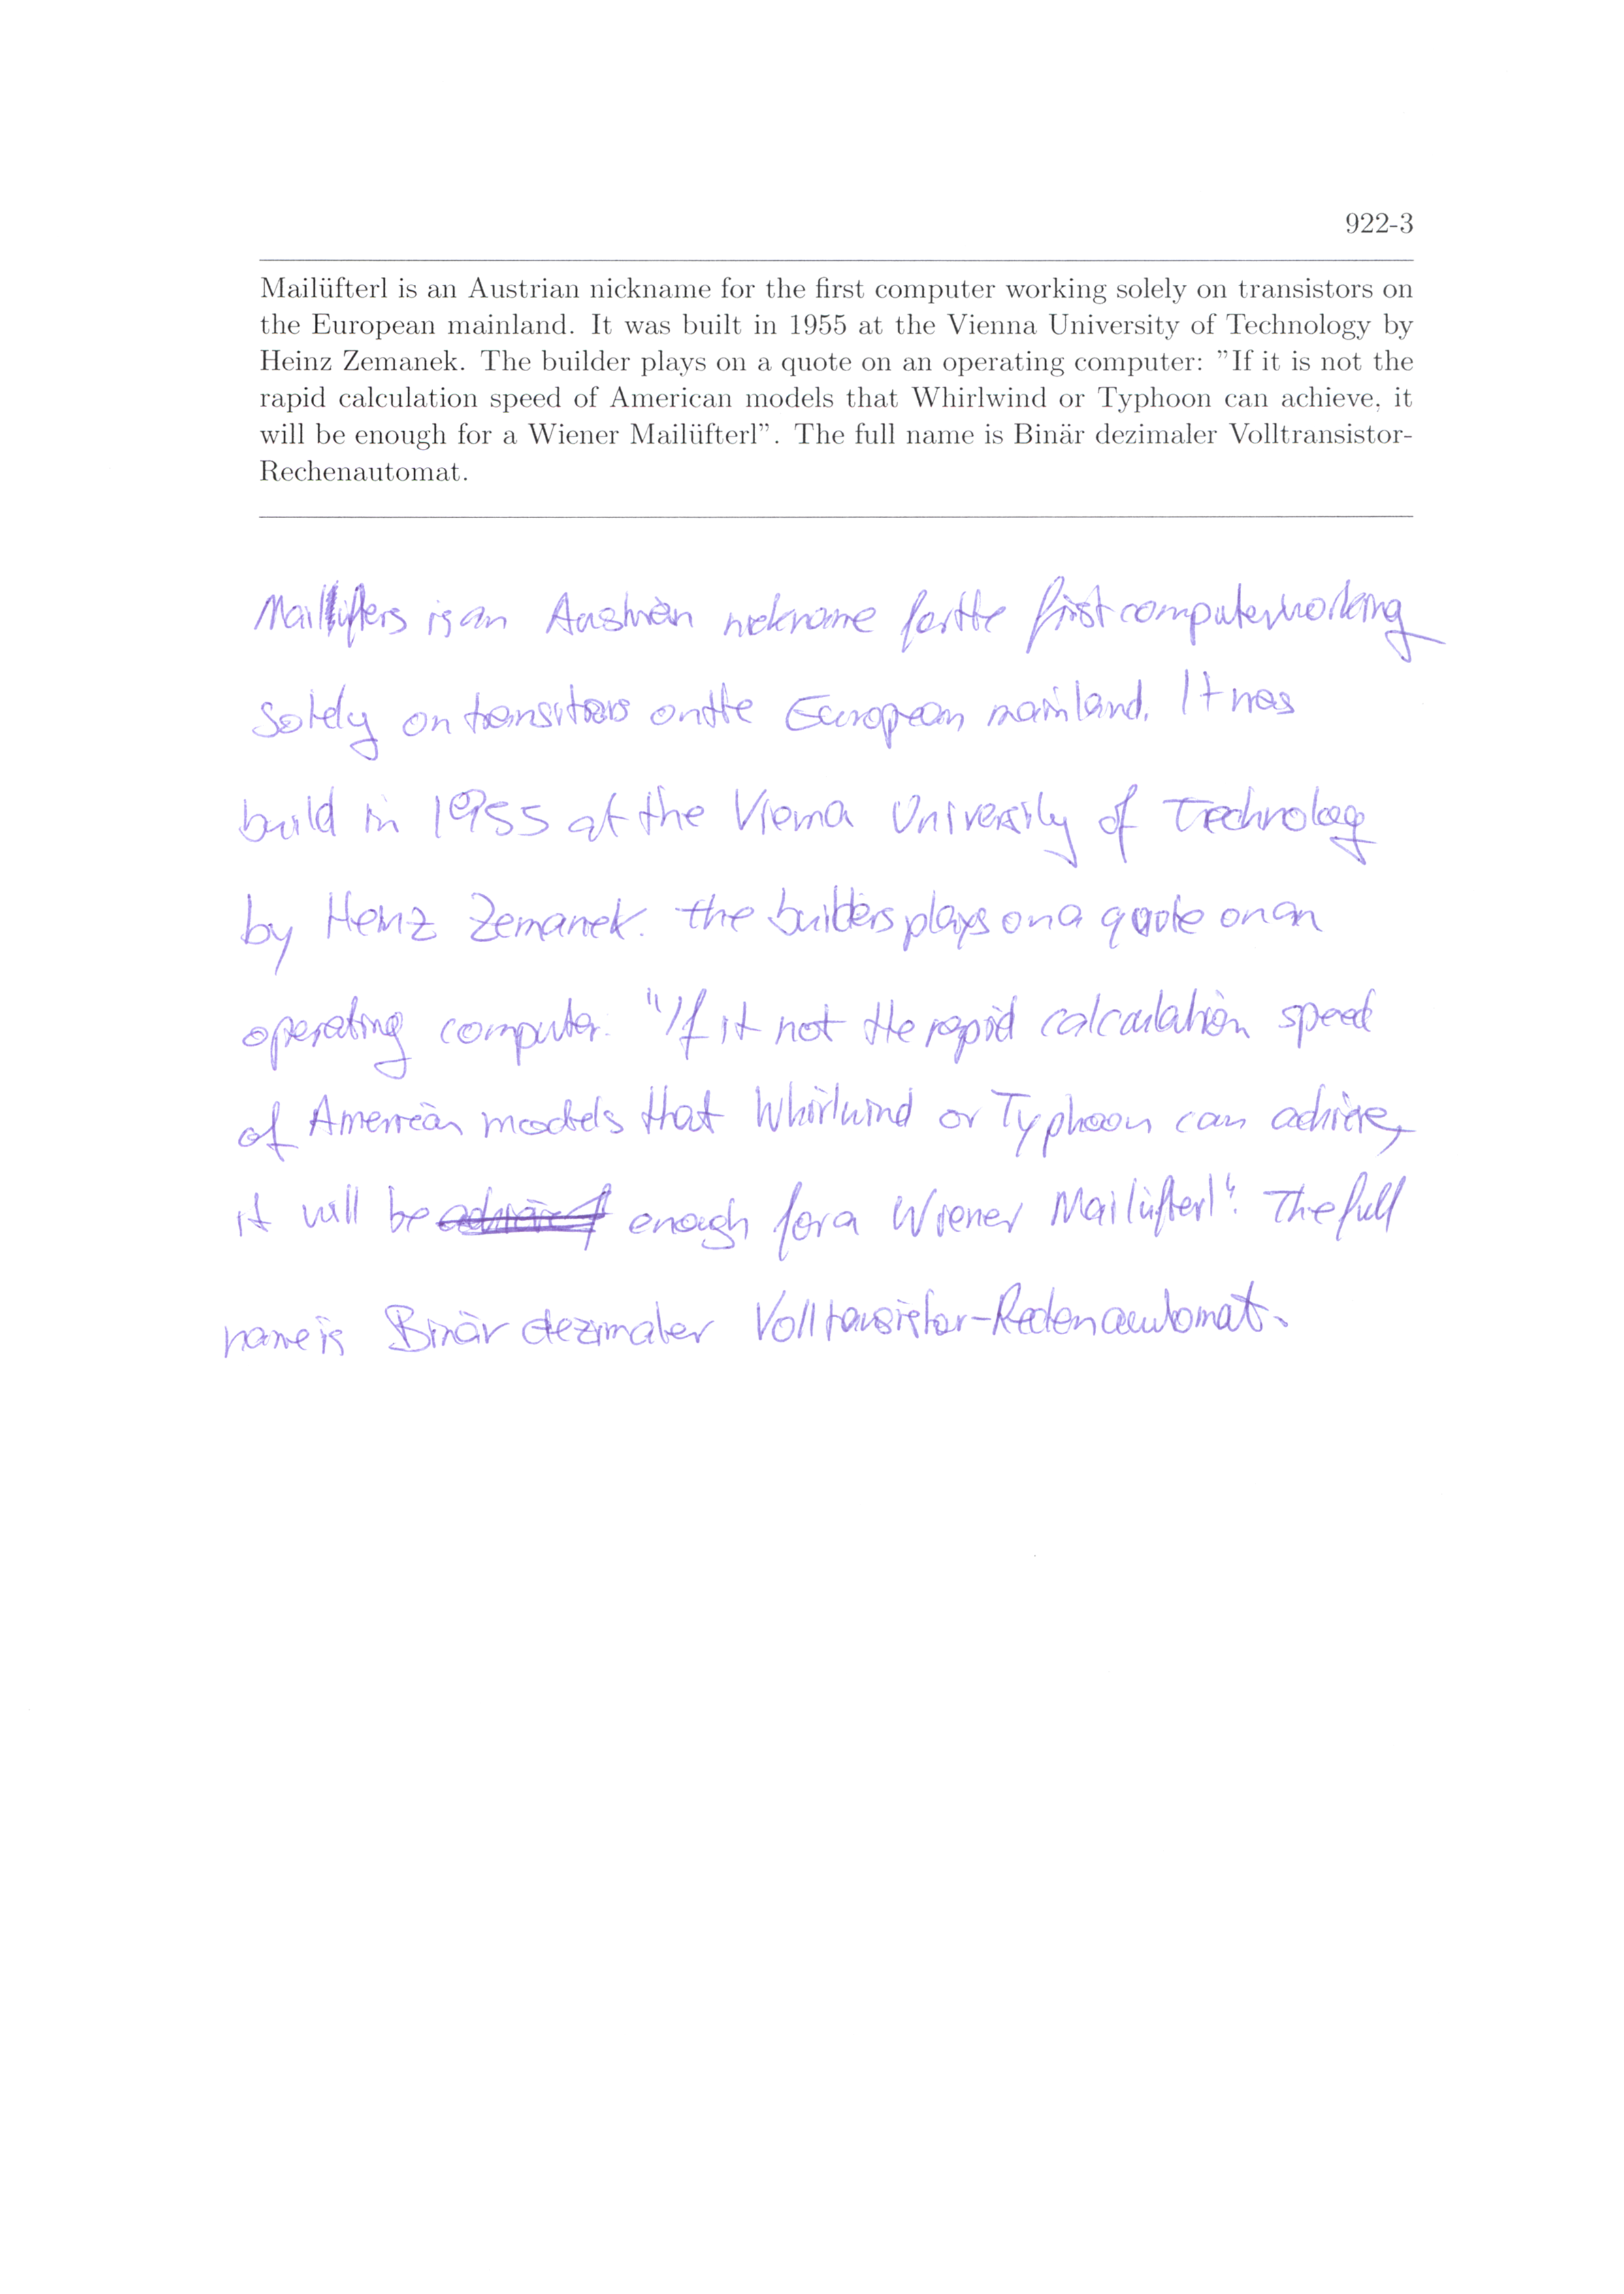 922-3
Mailüfterl is an Austrian nickname for the first computer working solely on transistors on
the European mainland. It was built in 1955 at the Vienna University of Technology by
Heinz Zemanek. The builder plays on a quote on an operating computer: "If it is not the
rapid calculation speed of American models that Whirlwind or Typhoon can achieve, it
will be enough for a Wiener Mailüfterl". The full name is Binär dezimaler Volltransistor-
Rechenautomat.
is an Austrian nickname for the first computer working
solely on transitors on the European mainland. It was
build in 1955 at the Vienna University of Technology
by Heinz Zemanek. the builders plays on a quote on an
operating computer. "If it not the rapid calculation speed
of American models that Whirlwind or Typhoon can achieve,
it will be enough for a Wiener Mailüfterl". The full
name is Binär dezimaler Volltransistor-Rechenautomat.